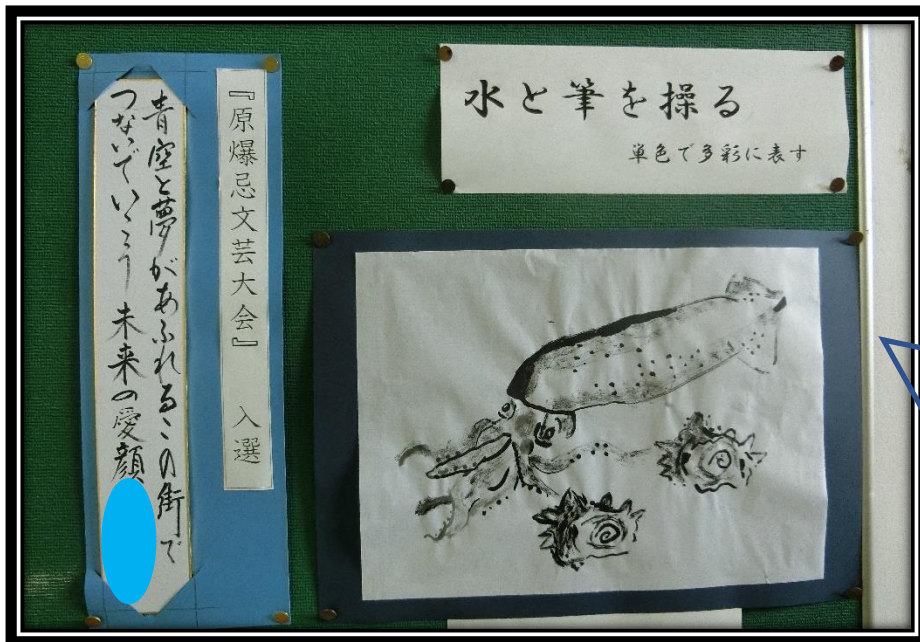 水と筆を操る
単色で多彩に表す
『原爆忌文芸大会』 入選
青空と夢があふれるこの街で
つないでいこう未来の愛顔